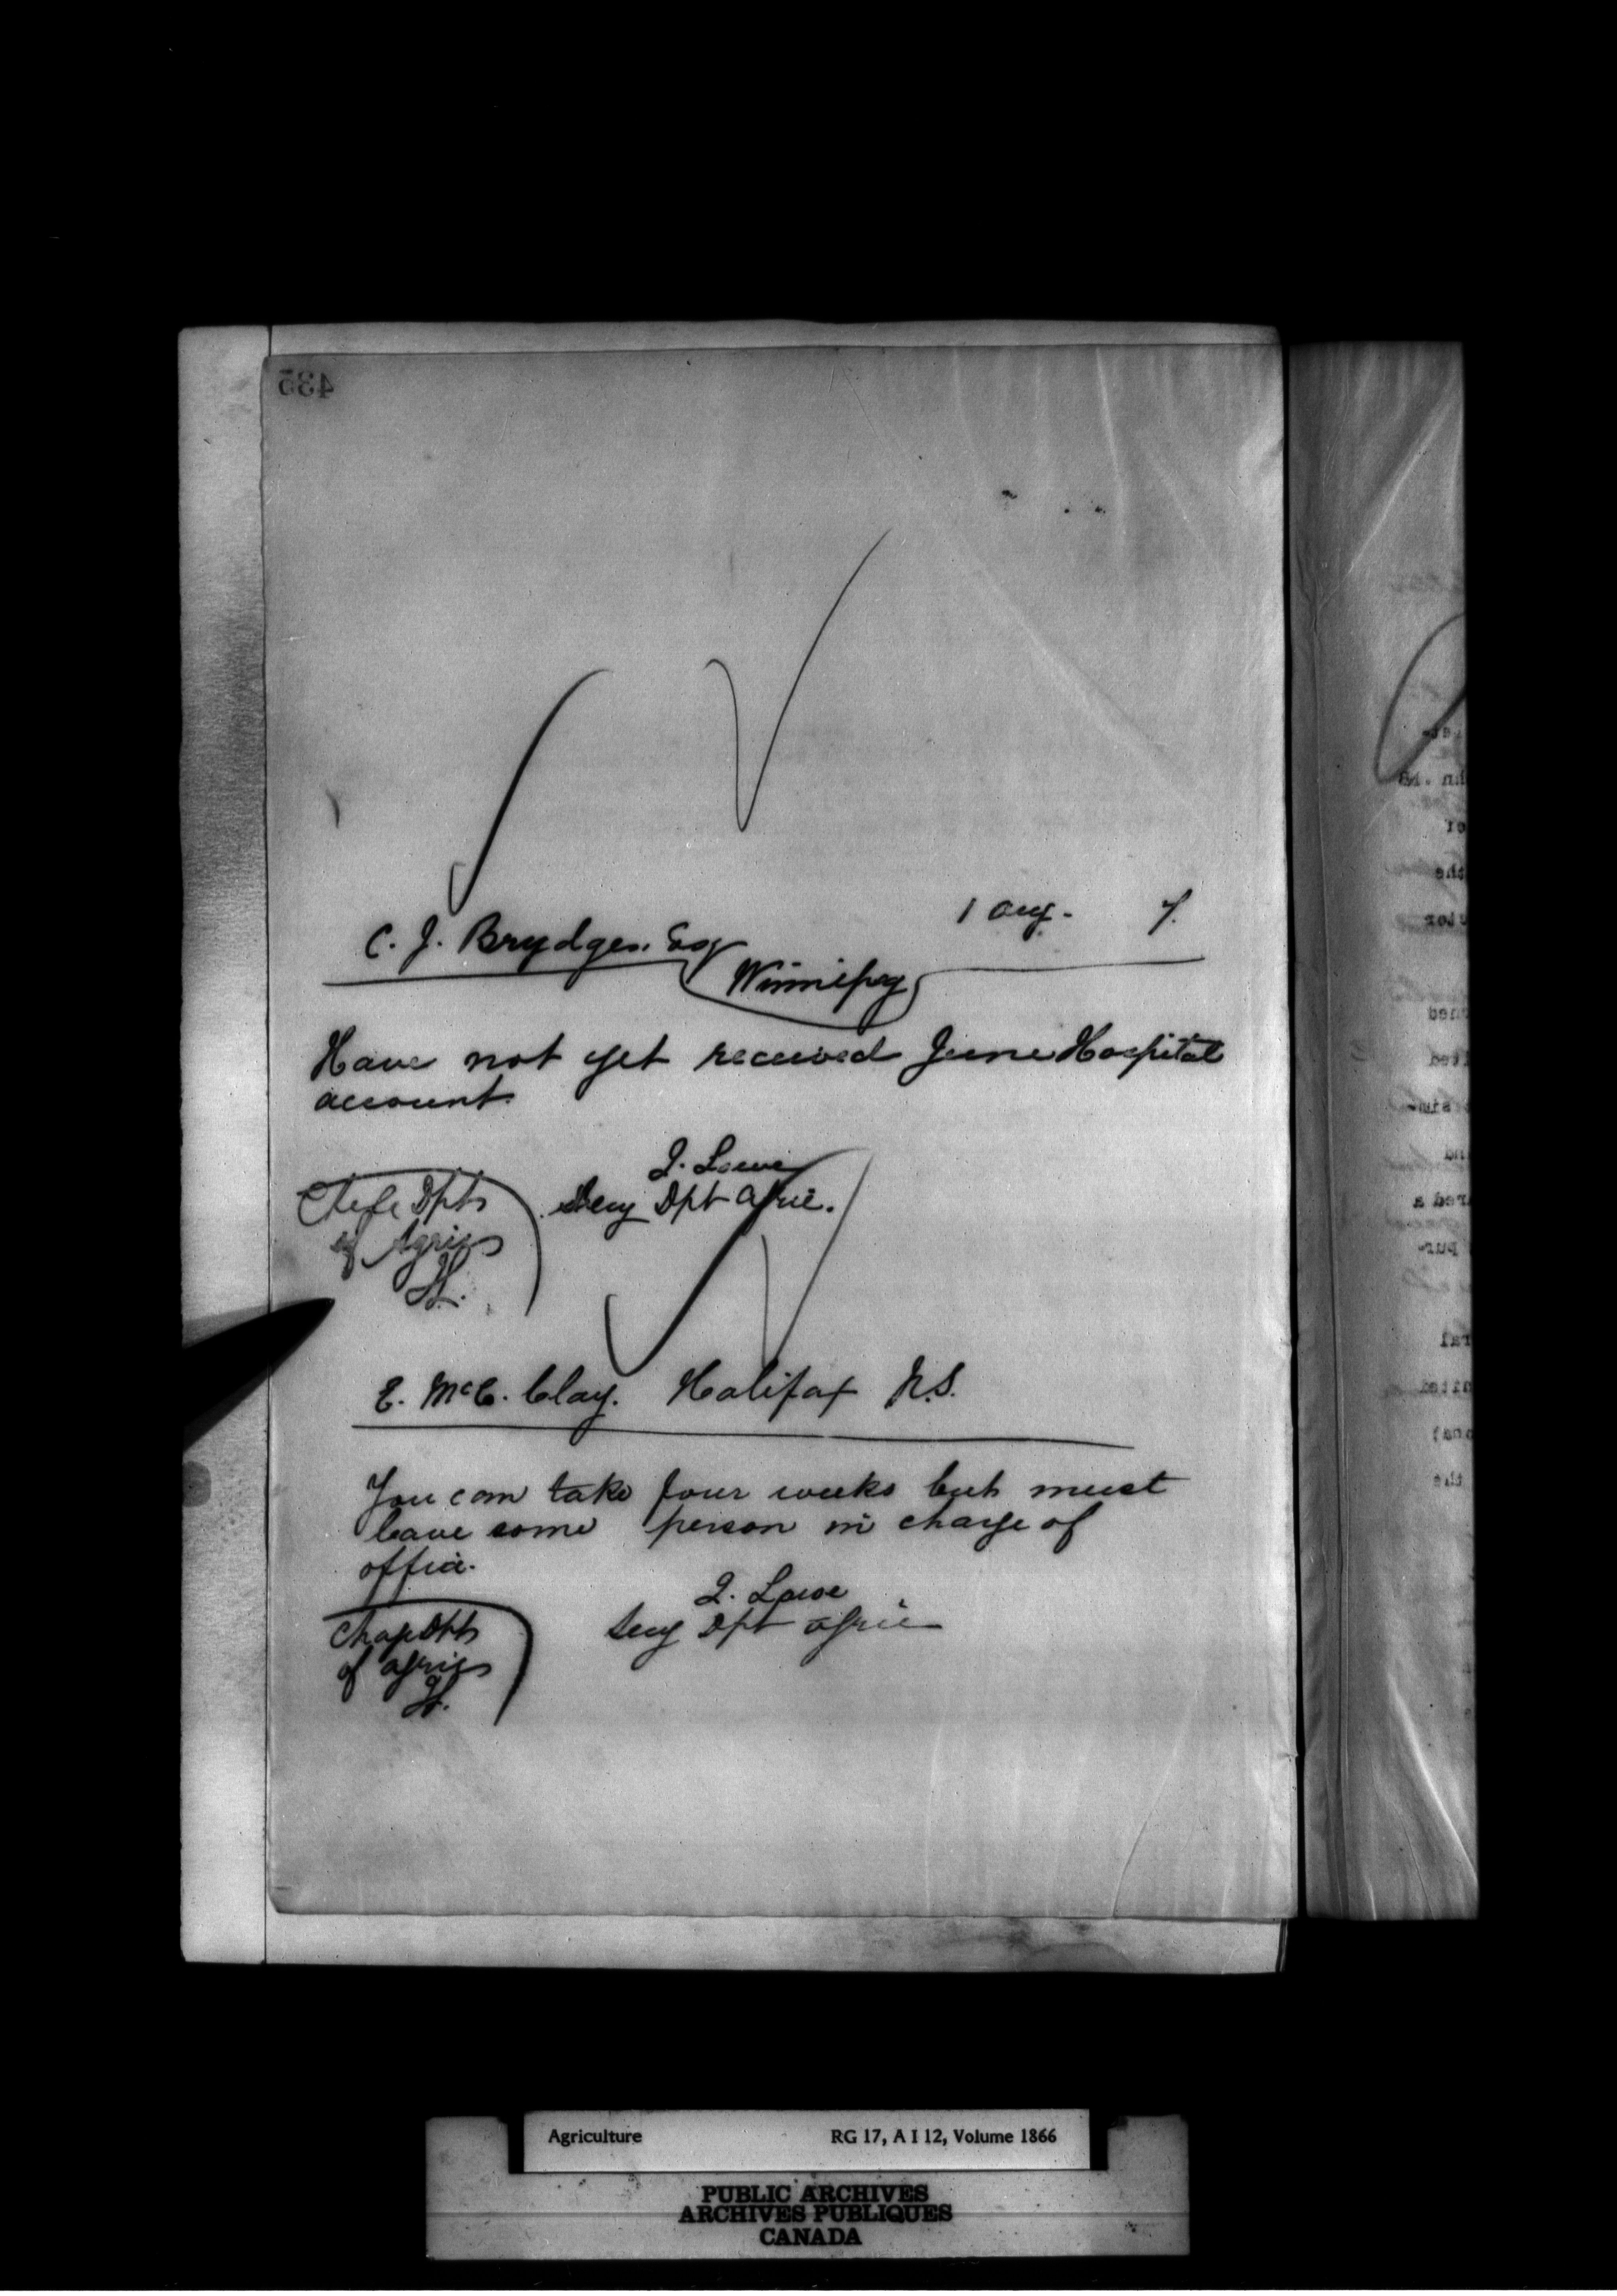 435
1 Aug. 7.
C. J. Brydges. Esq
Winnipeg
Have not yet received June Hospital
account.
J. Lowe
Secy Dpt Agric.
Dpt
of Agric
JL.
E. McC. Clay. Halifax N.S.
You can take four weeks but must
leave some person in charge of
office.
J. Lowe
Secy Dpt Agric
Charge Dpt
of Agric
JL.
Agriculture RG 17, A I 12, Volume 1866
PUBLIC ARCHIVES
ARCHIVES PUBLIQUES
CANADA